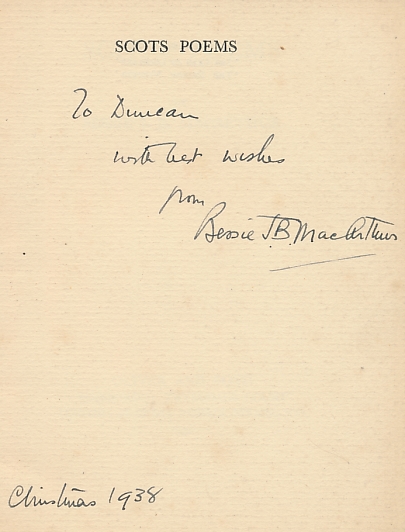 SCOTS POEMS
To Duncan
with best wishes
from
Bessie J.B. MacArthur
Christmas 1938